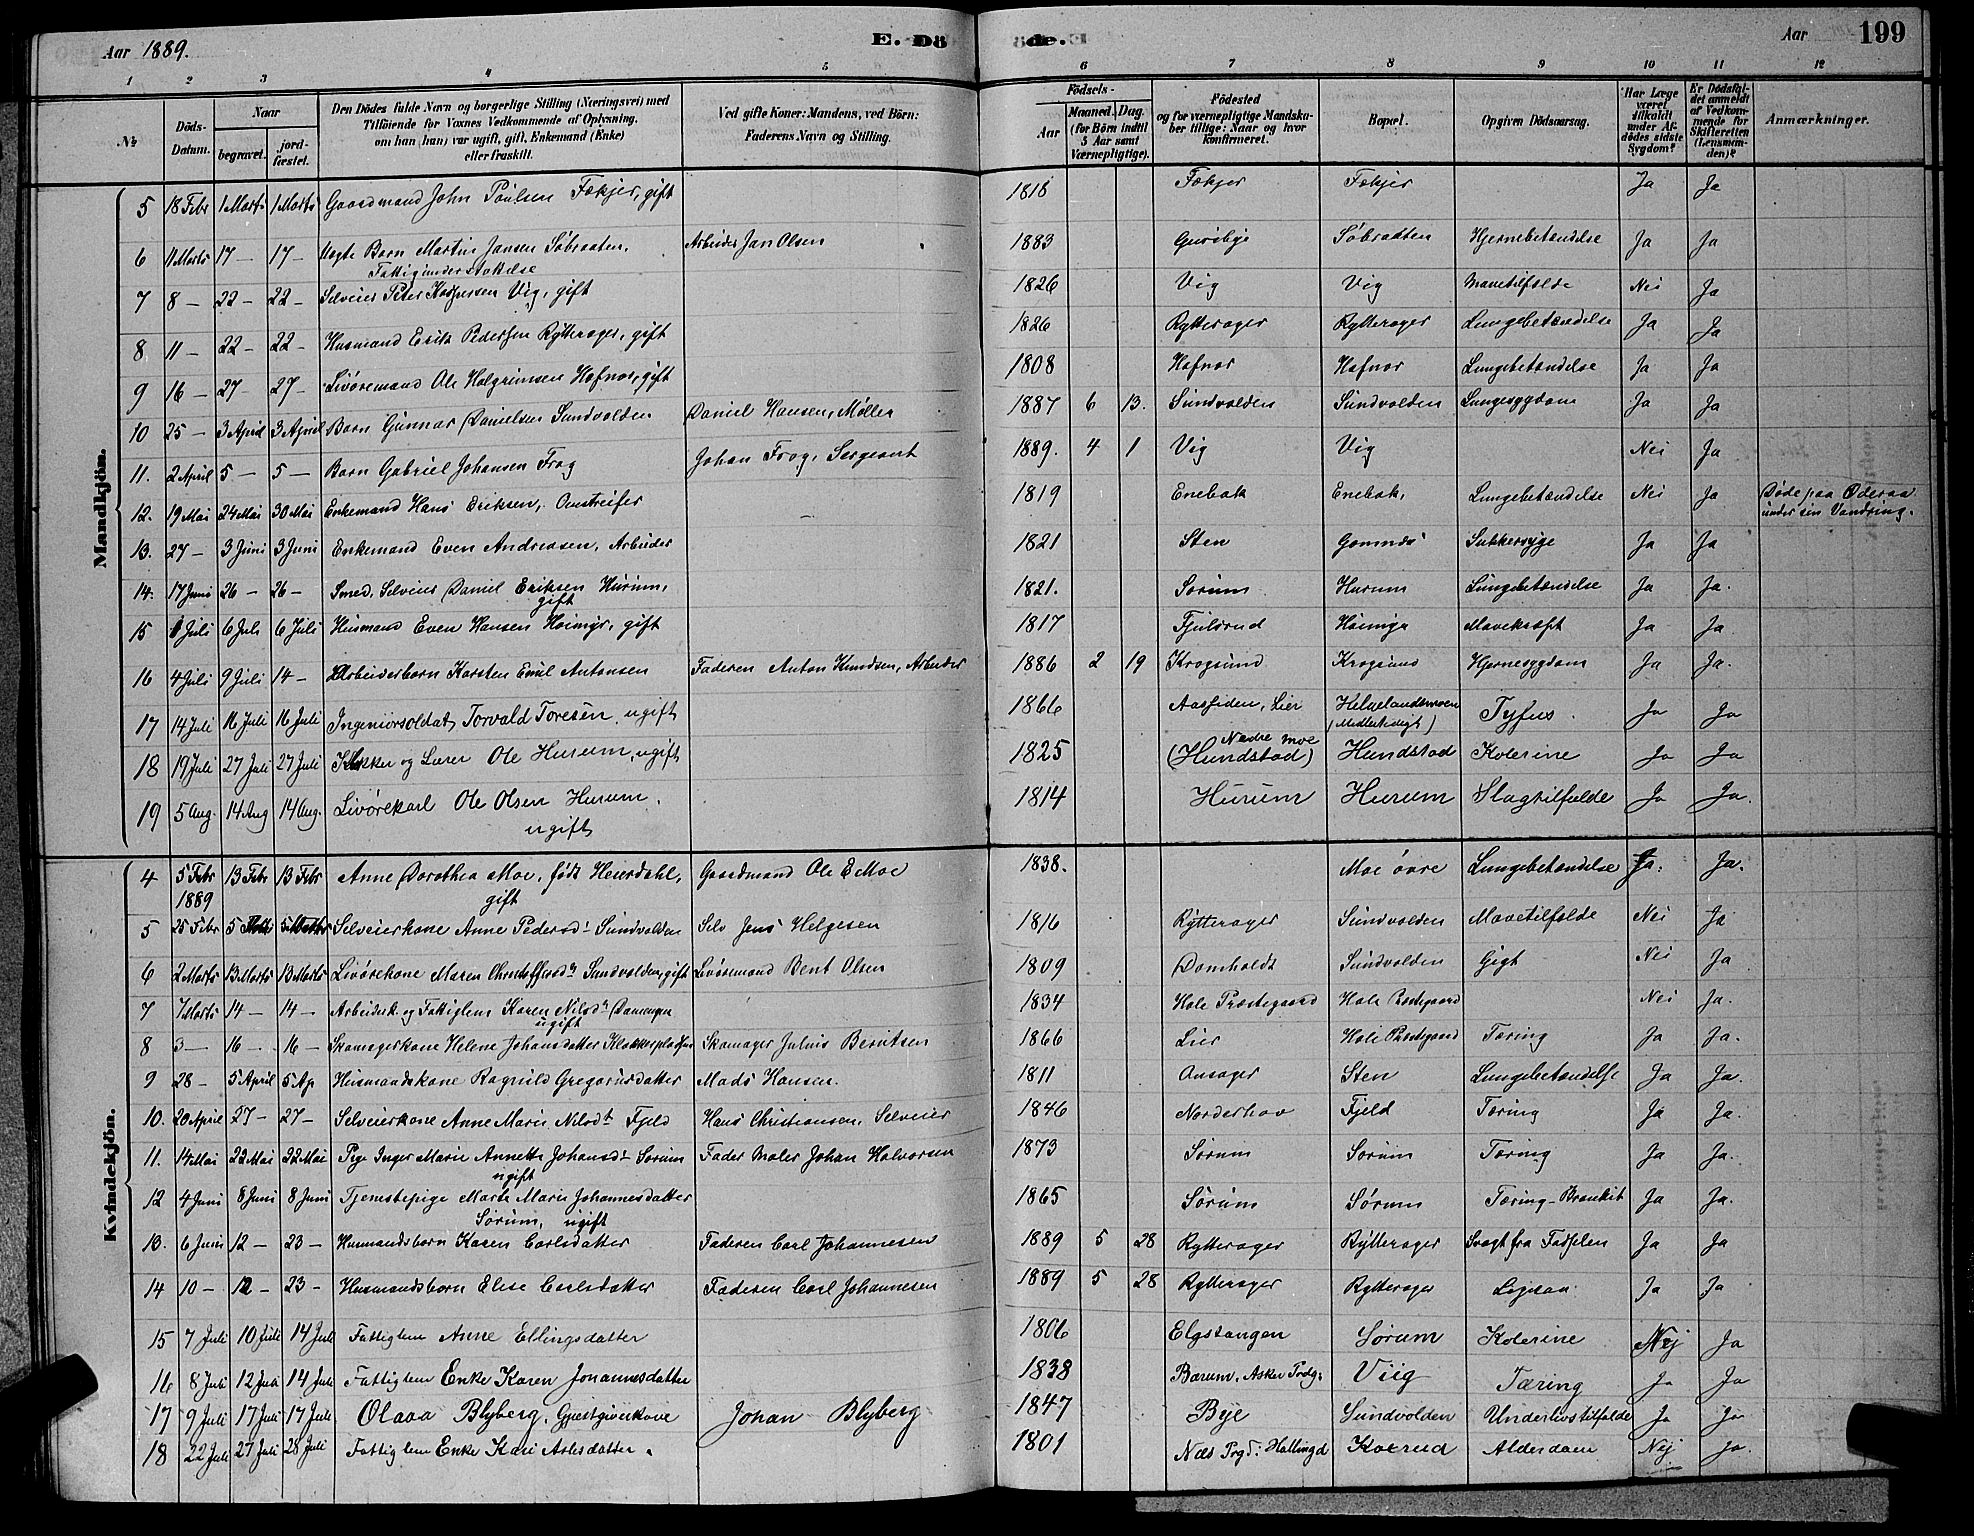 Aar 1889.
E. Dö
de. E
Aar
199
1 2 3 4 5 6 7 8 9 10 11 12
№
Döds-Datum.
Naar
begravet.
jord-fæstet.
Den Dödes fulde Navn og borgerlige Stilling (Næringsvei) med
Tilföiende for Voxnes Vedkommende af Oplysning.
om han (hun) var ugift, gift, Enkemand (Enke)
eller fraskilt.
Ved gifte Koner: Mandens, ved Börn:
Faderens Navn og Stilling.
Födsels-
Aar
Maaned. Dag.
(for Börn indtil
5 Aar samt
Værnepligtige).
Födested
og for værnepligtige Mandska-
ber tillige: Naar og hvor
konfirmeret.
Bopæl.
Opgiven Dödsaarsag.
Har Læge
været
tilkaldt
under Af-
dödes sidste
Sygdom?
Er Dödsfal-
det anmeldt
af Vedkom-
mende for
Skifteretten
(Lensman-
den)?
Anmærkninger.
Mandkjön.
5 18 Febr 1 Marts 1 Marts Gaardmand John Paulsen Fækjer, gift 1818 Fækjer Fækjer Ja Ja
6 11 Marts 17 — 17 — Uægte Barn Martin Jansen Söbraaten, Arbeider Jan Olsen 1883 Guriby Söbraaten Hjernebetændelse Ja Ja
Fattigunderstøttelse
7 8 — 22 — 22 — Selveier Peter Kaspersen Vig, gift 1826 Vig Vig Mavetilfælde Nei Ja
8 11 — 22 — 22 — Husmand Erik Pedersen Rytterager, gift 1826 Rytterager Rytterager Lungebetændelse Ja Ja
9 16 — 27 27 — Livöremand Ole Halgrimsen Hafnor, gift 1808 Hafnor Hafnor Lungebetændelse Ja Ja
10 25 — 3 April 3 April Barn Gunnar Danielsen Sundvolden Daniel Hansen, Møller 1887 6 13. Sundvolden Sundvolden Lungesygdom Ja Ja
11. 2 April 5 — 5 — Barn Gabriel Johansen Frog Johan Frog, Sergeant 1889. 4 1 Vig Vig Nei Ja
12. 19 Mai 24 Mai 30 Mai Enkemand Hans Eriksen, Omstreifer 1819 Enebak Enebak, Lungebetændelse Nei Ja Døde paa Øderaa
under sin Vandring.
13. 27 — 3 Juni 3 Juni Enkemand Even Andreasen, Arbeider 1821 Sten Gomnæs Sukkersyge Ja Ja
14. 17 Juni 26 — 26 — Smed, Selveier Daniel Eriksen Hurum, 1821. Sørum Hurum Lungebetændelse Ja Ja.
gift
15 1 Juli 6 Juli 6 Juli Husmand Even Hansen Høimyr, gift 1817 Fjulsrud Høimyr Mavekræft Ja Ja
16 4 Juli 9 Juli 14 — Arbeiderbarn Karsten Emil Antonsen Faderen Anton Knudsen, Arbeider 1886 2 19 Krogsund Krogsund Hjernesygdom Ja Ja.
17 14 Juli 16 Juli 16 Juli Ingeniørsoldat Torvald Toresen, ugift 1866 Aassiden, Lier Helgelandsmoen Tyfus. Ja Ja
18 19 Juli 27 Juli 27 Juli Klokker og Lærer Ole Hurum, ugift 1825 Nedre Moe (Hundstad) Hundstad Kolerine Ja Ja
19 5 Aug. 14 Aug 14 Aug. Livørekarl Ole Olsen Hurum, 1814 Hurum Hurum Slagtilfælde Ja Ja.
ugift
Kvindekjön.
4 5 Febr 13 Febr 13 Febr Anne Dorothea Moe, født Heierdahl, Gaardmand Ole E Moe 1838. Moe övre Lungebetændelse Ja. Ja.
1889 gift
5 25 Febr 5 Marts 5 Marts Selveierkone Anne Pedersd. Sundvolden Selv Jens Helgesen 1816 Rytterager Sundvolden Mavetilfælde Nei Ja
6 2 Marts 13 Marts 13 Marts Livørekone Maren Christoffersd. Sundvolden, gift Livøremand Bent Olsen 1809 Domholdt Sundvolden Gigt Nei Ja
7 7 Marts 14 — 14 — Arbeidsk. og Fattiglem Karen Nilsd. 1834 Hole Præstegaard Hole Præstegaard Nei Ja.
ugift
8 3 — 16 — 16 — Skomagerkone Helene Johansdatter Klokkerpladsen Skomager Julius Berntsen 1866 Lier Hole Præstegaard Tæring Ja Ja.
9 28 — 5 April 5 Ap Husmandskone Ragnild Gregoriusdatter Mads Hansen. 1811 Onsager Sten Lungebetændelse Ja Ja.
10. 20 April 27 — 27 — Selveierkone Anne Marie Nilsd. Fjeld Hans Christiansen, Selveier 1846 Norderhov Fjeld Tæring Ja Ja.
11. 14 Mai 22 Mai 22 Mai Pige Inger Marie Annette Johansd. Sørum Fader Maler Johan Halvorsen 1873 Sørum Sørum Tæring Ja Ja.
ugift
12 4 Juni 8 Juni 8 Juni Tjenestepige Marte Marie Johannesdatter 1865 Sørum Sørum Tæring – Bronkit Ja Ja.
Sørum, ugift
13. 6 Juni 12 — 23 — Husmandsbarn Karen Carlsdatter Faderen Carl Johannesen 1889 5 28 Rytterager Rytterager Svagt fra Fødselen Ja Ja
14 10 — 12 — 23 — Husmandsbarn Elise Carlsdatter Faderen Carl Johannesen 1889 5 28 Rytterager Rytterager Ligesaa Ja Ja
15 7 Juli 10 Juli 14 Juli Fattiglem Anne Ellingsdatter 1806 Elgstangen Sørum Kolerine Nej Ja
16 8 Juli 12 Juli 14 Juli Fattiglem Enke Karen Johannesdatter 1838 Bærum, Asker Prdg. Viig Tæring Ja Ja
17 9 Juli 17 Juli 17 Juli Olava Blyberg, Gjæstgiverkone Johan Blyberg 1847 Bye Sundvolden Underlivstilfælde Ja Ja
18 22 Juli 27 Juli 28 Juli Fattiglem Enke Kari Atlesdatter. 1801 Næs Prgd: Hallingd Alderdom Nej Ja.